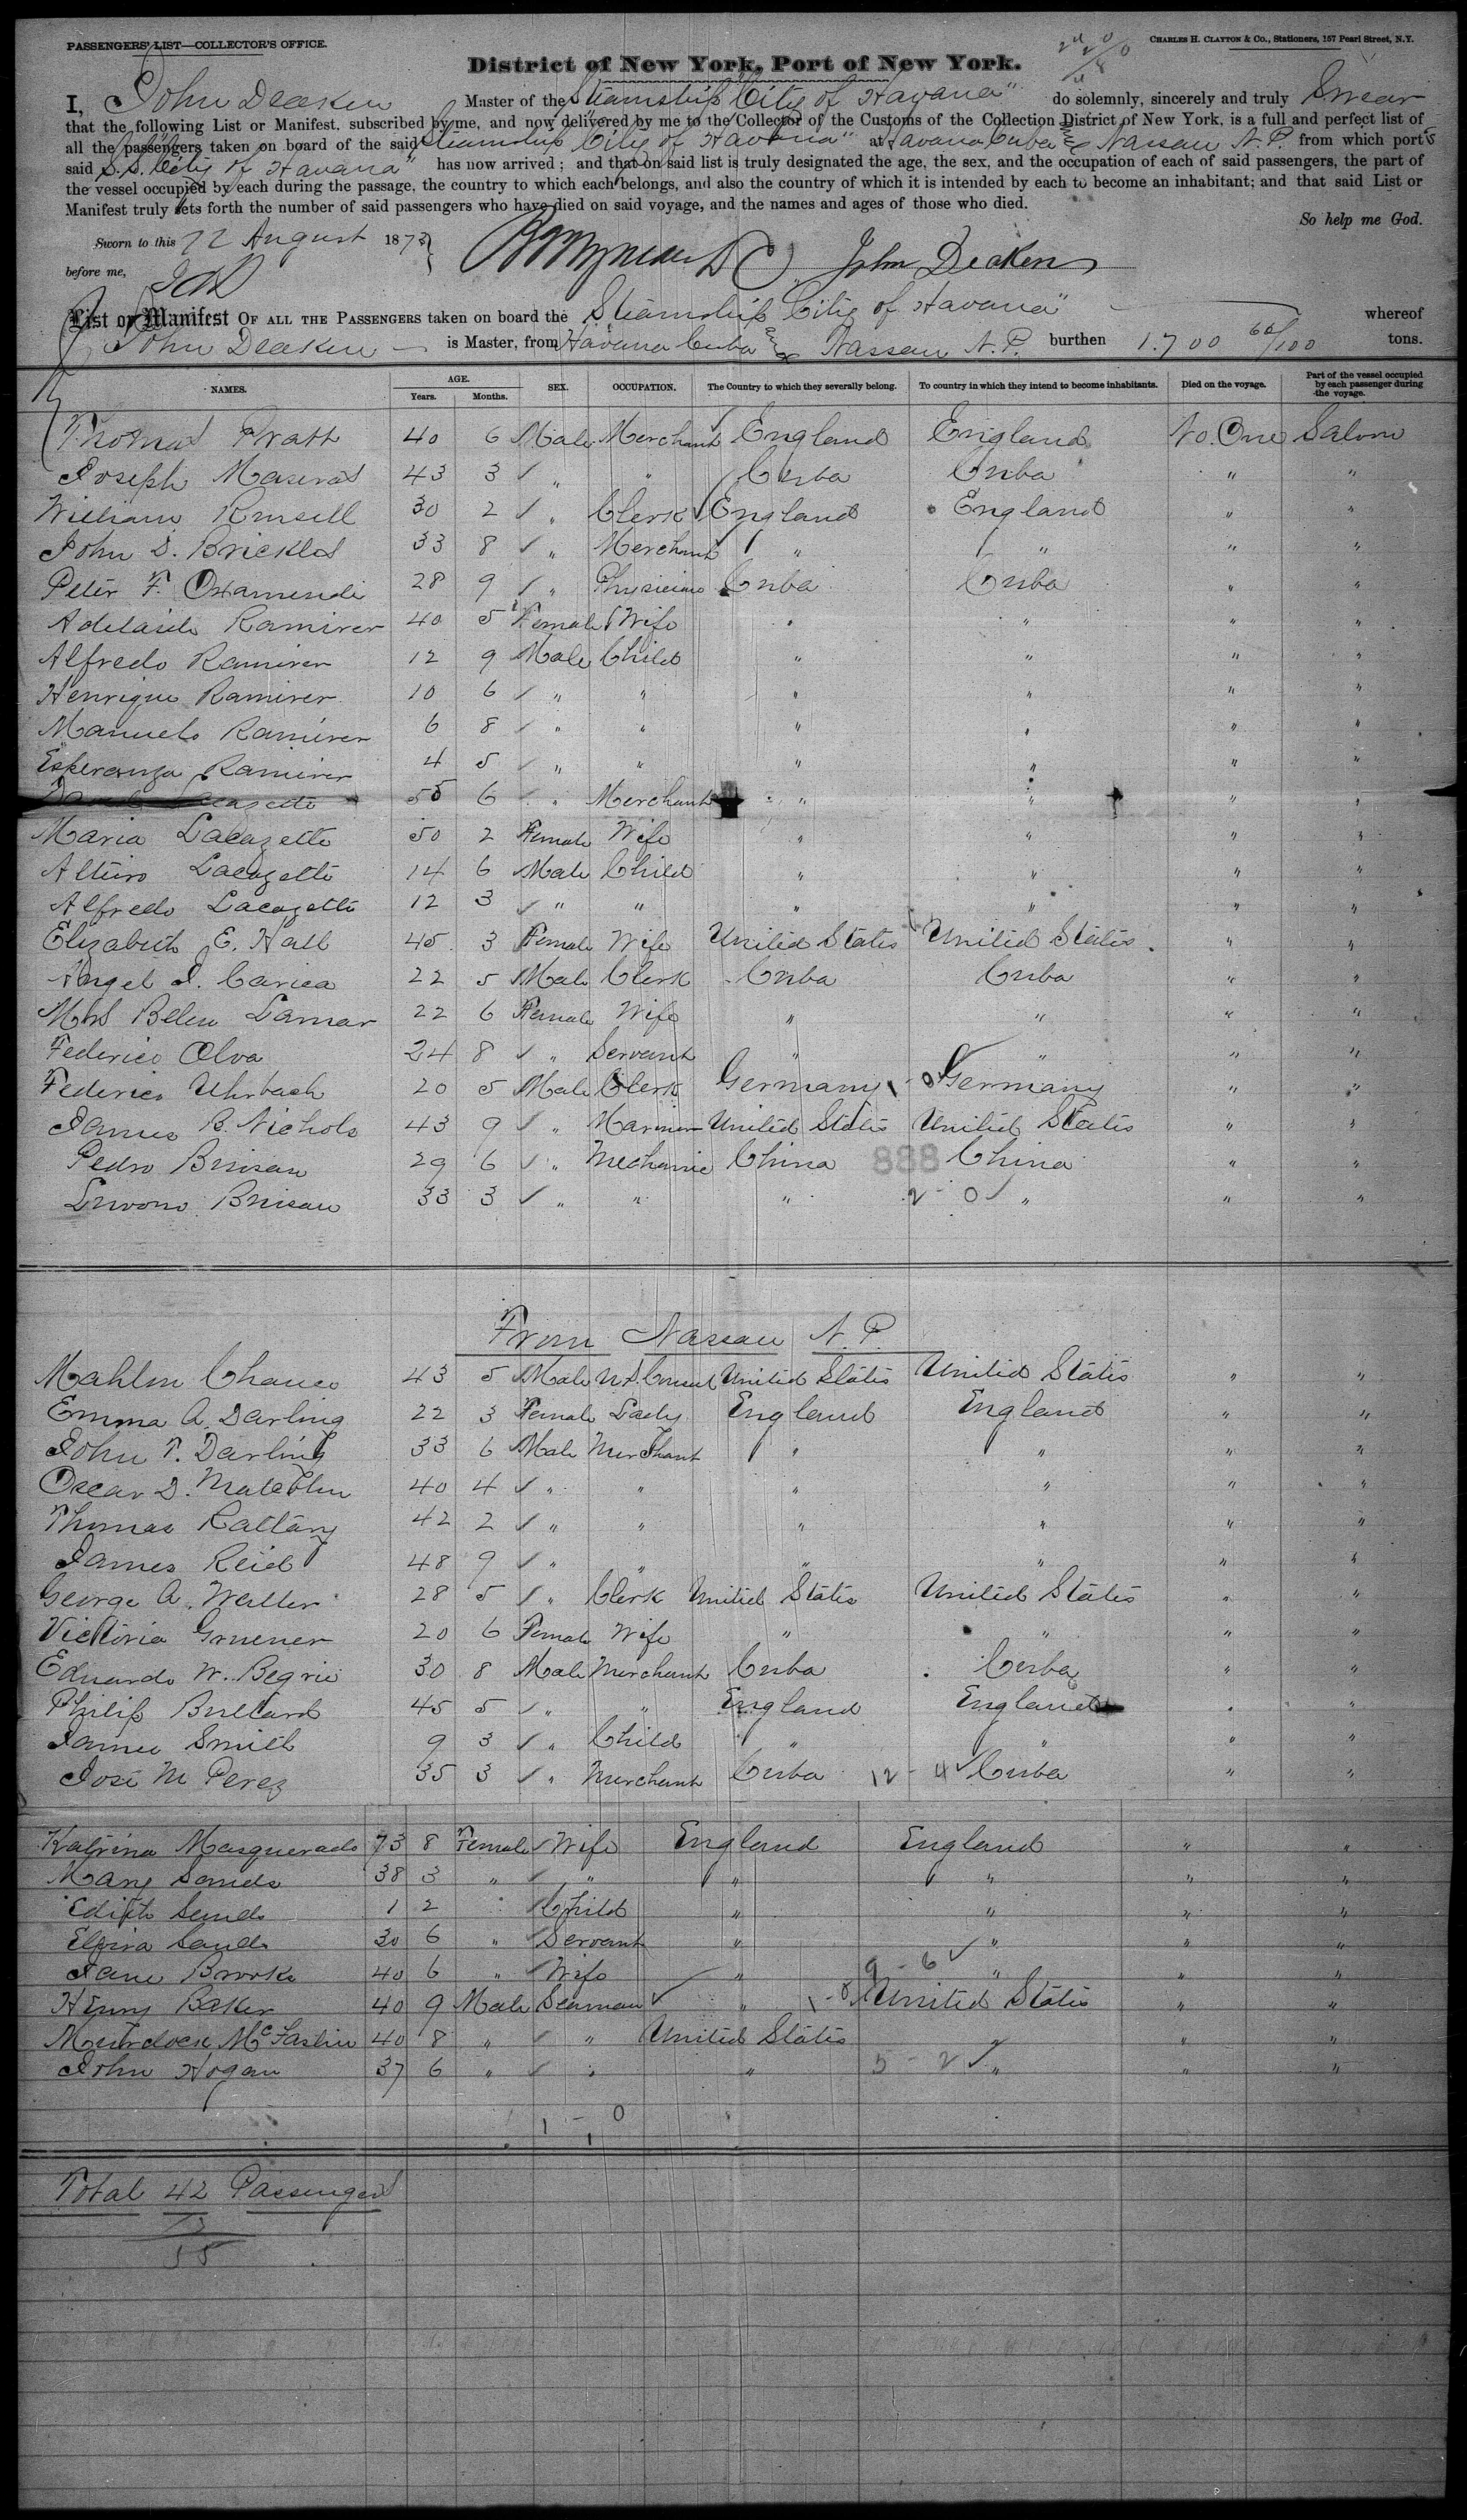 PASSENGERS' LIST—COLLECTOR'S OFFICE.
CHARLES H. CLAYTON & Co., Stationers, 157 Pearl Street, N.Y.
District of New York, Port of New York.
I, John Deaken Master of the Steamship "City of Havana" do solemnly, sincerely and truly Swear
that the following List or Manifest, subscribed by me, and now delivered by me to the Collector of the Customs of the Collection District of New York, is a full and perfect list of
all the passengers taken on board of the said Steamship "City of Havana" at Havana Cuba & Nassau N.P. from which ports
said S.S. "City of Havana" has now arrived; and that on said list is truly designated the age, the sex, and the occupation of each of said passengers, the part of
the vessel occupied by each during the passage, the country to which each belongs, and also the country of which it is intended by each to become an inhabitant; and that said List or
Manifest truly sets forth the number of said passengers who have died on said voyage, and the names and ages of those who died.
So help me God.
Sworn to this 22 August 1873
before me, John Deaken
List or Manifest OF ALL THE PASSENGERS taken on board the Steamship "City of Havana" whereof
John Deaken is Master, from Havana Cuba & Nassau N.P. burthen 1.700 60/100 tons.
NAMES. AGE. Years. Months. SEX. OCCUPATION. The Country to which they severally belong. To country in which they intend to become inhabitants. Died on the voyage. Part of the vessel occupied by each passenger during the voyage.
Thomas Pratt 40 6 Male Merchant England England No. One Saloon
Joseph Maseras 43 3 " " Cuba Cuba " "
William Runsell 30 2 " Clerk England England " "
John D. Brickles 33 8 " Merchant " " " "
Peter F. Oxamendi 28 9 " Physician Cuba Cuba " "
Adelaide Ramirer 40 5 Female Wife " " " "
Alfredo Ramirer 12 9 Male Child " " " "
Henrique Ramirer 10 6 " " " " " "
Manuelo Ramirer 6 8 " " " " " "
Esperanza Ramirer 4 5 " " " " " "
Lacazette 55 6 " Merchant " " " "
Maria Lacazette 50 2 Female Wife " " " "
Lacazette 14 6 Male Child " " " "
Alfredo Lacazette 12 3 " " " " " "
Elizabeth E. Hall 45 3 Female Wife United States United States " "
Angel J. Carica 22 5 Male Clerk Cuba Cuba " "
Mrs Belen Lamar 22 6 Female Wife " " " "
Federico Olva 24 8 " Servant " " " "
Federico Uhrbach 20 5 Male Clerk Germany Germany " "
James B. Nichols 43 9 " Mariner United States United States " "
Pedro Brisau 29 6 " Mechanic China 888 China " "
Brisau 33 3 " " " 2 - 0 " " "
From Nassau N.P.
Mahlon Chance 43 5 Male U.S. Consul United States United States " "
Emma A. Darling 22 3 Female Lady England England " "
John T. Darling 33 6 Male Merchant " " " "
Oscar D. Malcolm 40 4 " " " " " "
Thomas Rattary 42 2 " " " " " "
James Reid 48 9 " " " " " "
George A. Weller 28 5 " Clerk United States United States " "
Victoria Gruener 20 6 Female Wife " " " "
Eduardo W. Begrie 30 8 Male Merchant Cuba Cuba " "
Philip Bullard 45 5 " " England England " "
James Smith 9 3 " Child " " " "
José M Perez 35 3 " Merchant Cuba 12 - 4 Cuba " "
Katrina Masquerade 73 8 Female Wife England England " "
Mary Sands 38 3 " " " " " "
Edith Sands 1 2 Child " " " "
Elvira Sands 30 6 " Servant " " " "
Jane Brooks 40 6 " Wife " 9 - 6 " " "
Henry Baker 40 9 Male Seaman " 1 - 0 United States " "
Murdock McFaslin 40 8 " " United States " " "
John Hogan 37 6 " " " 5 - 2 " " "
1 - 0
Total 42 Passengers
13
55